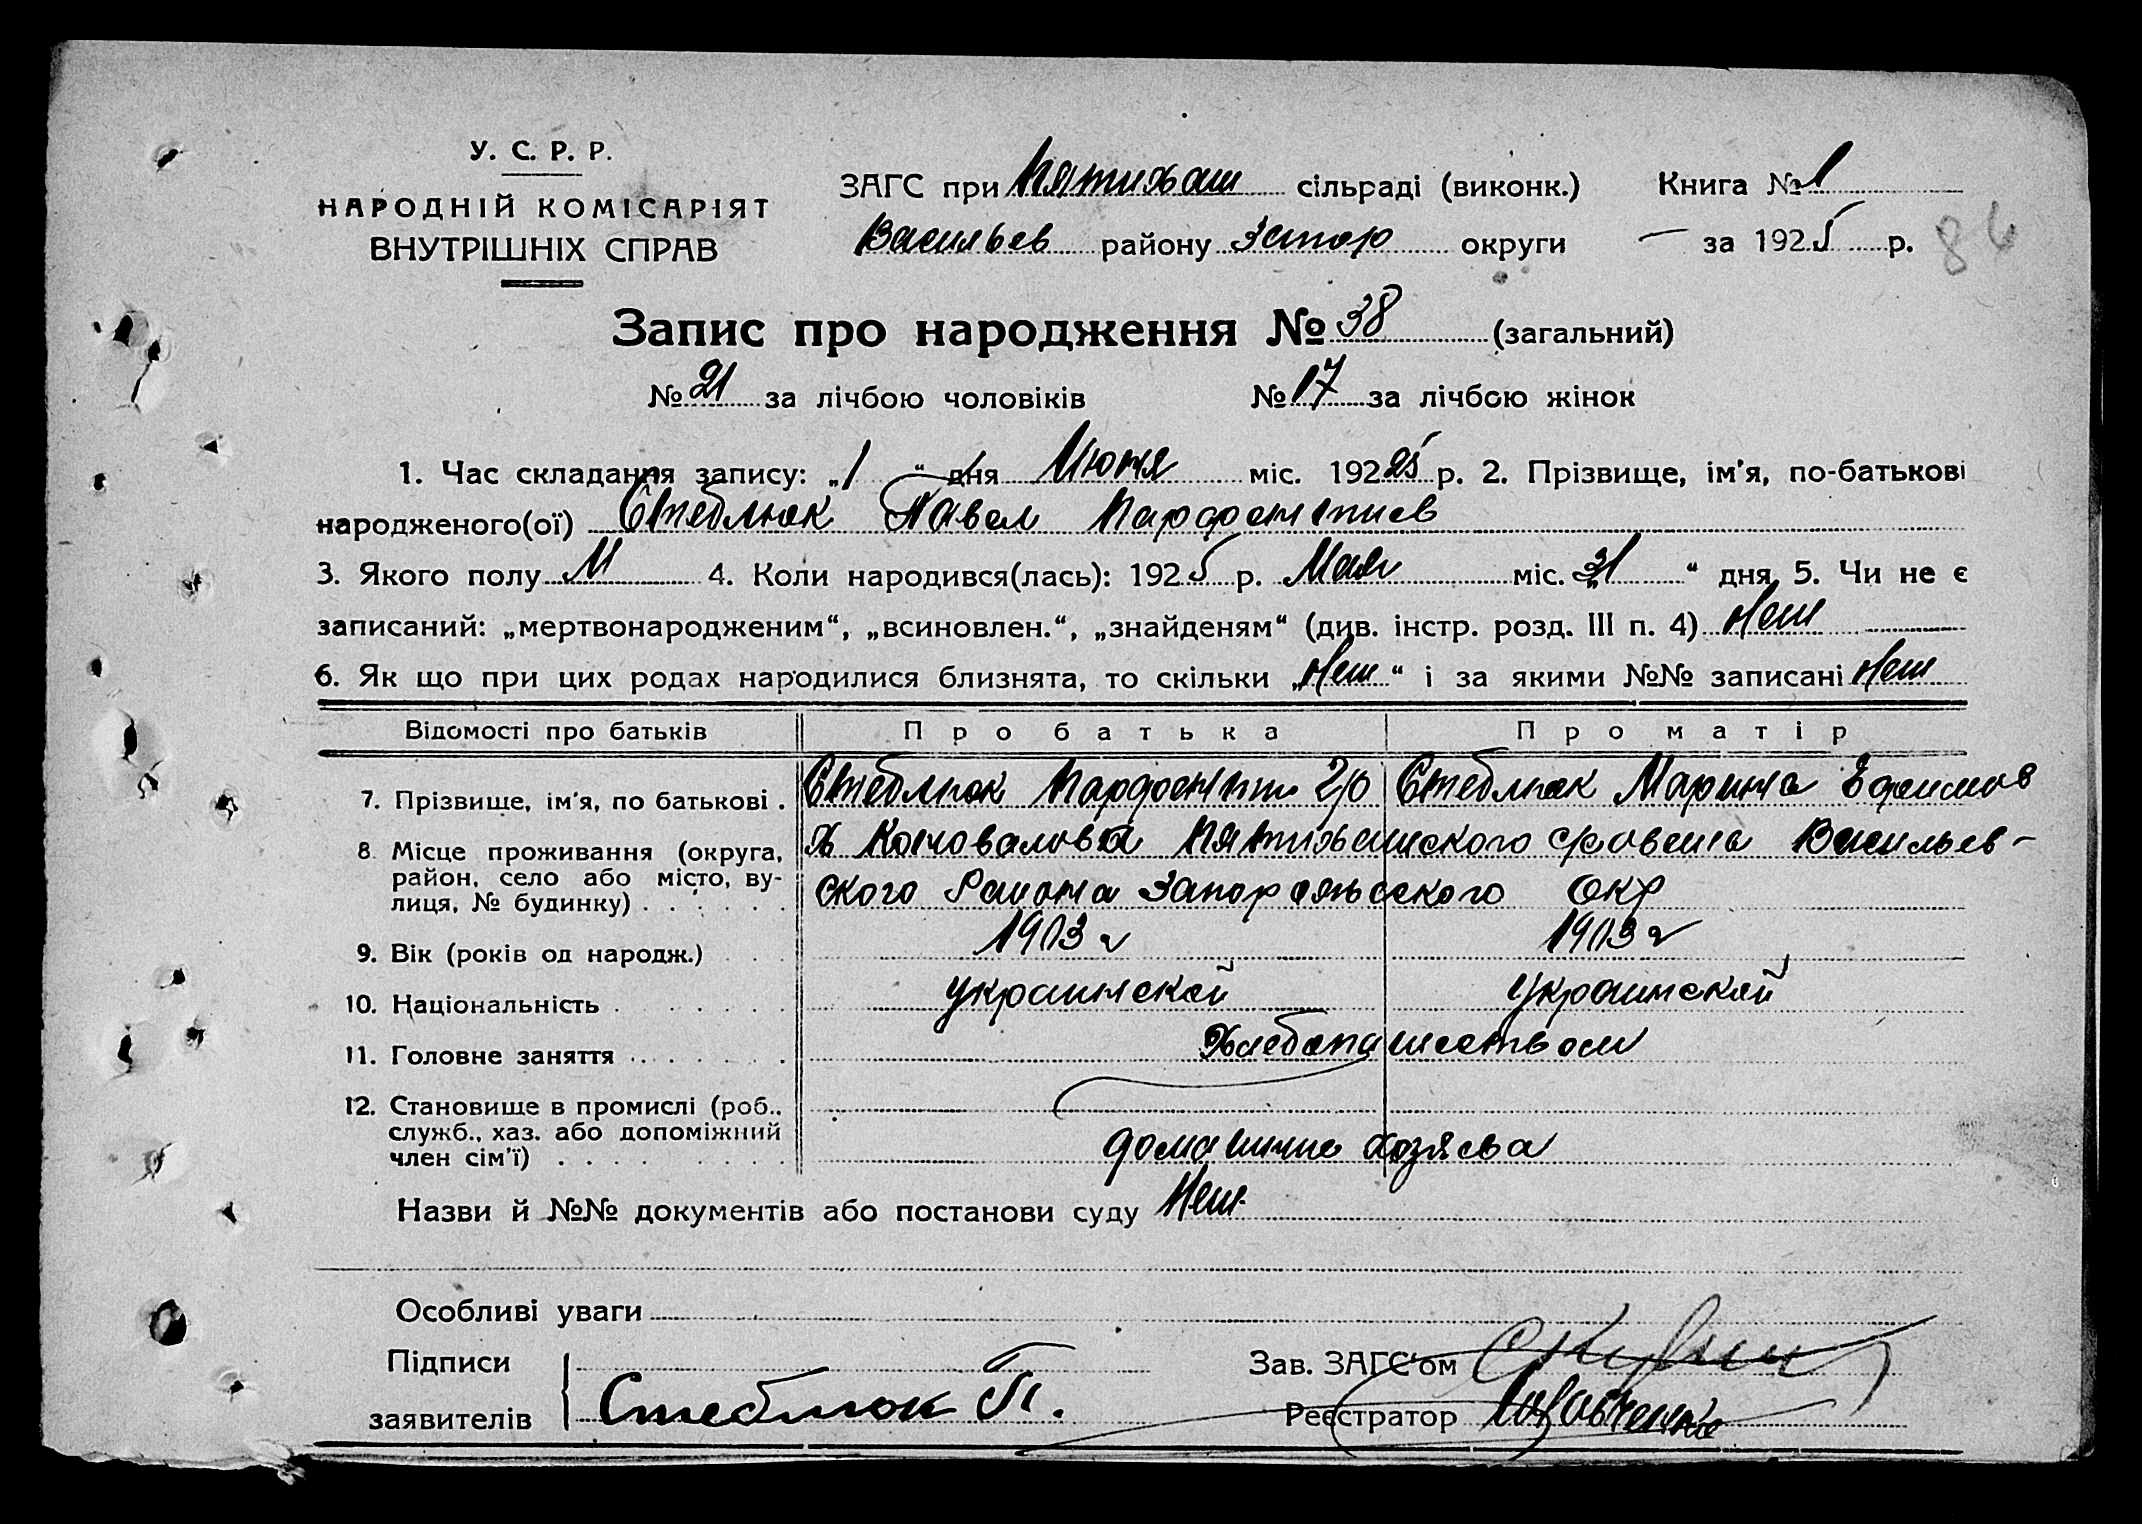 У. С. Р. Р.
НАРОДНІЙ КОМІСАРІЯТ
ВНУТРІШНІХ СПРАВ
ЗАГС при Пятихат сільраді (виконк.) Книга № 1
Васильев району Запор округи — за 1925 р.
86
Запис про народження № 38 (загальний)
№ 21 за лічбою чоловіків № 17 за лічбою жінок
1. Час складання запису: „1“ дня Июня міс. 19225 р. 2. Прізвище, ім'я, по-батькові
народженого(ої) Стеблюк Павел Парфентиев
3. Якого полу М 4. Коли народився(лась): 1925 р. Мая міс. „31“ дня 5. Чи не є
записаний: „мертвонародженим“, „всиновлен.“, „знайденям“ (див. інстр. розд. III п. 4) Нет
6. Як що при цих родах народилися близнята, то скільки „Нет“ і за якими №№ записані Нет
Відомості про батьків Про батька Про матір
7. Прізвище, ім'я, по батькові . Стеблюк Парфентий Стеблюк Марина Ефимов
8. Місце проживання (округа, район, село або місто, вулиця, № будинку) . . . . . . Х Коновалова Пятихатского Васильев-
ского Района Запорожского Окр
9. Вік (років од народж.) . . . 1903 г 1903 г
10. Національність . . . . . . . украинской Украинской
11. Головне заняття . . . . . . . Хлебопашеством
12. Становище в промислі (роб., служб., хаз. або допоміжний член сім'ї) . . . . . . . . домашние хозяева
Назви й №№ документів або постанови суду Нет
Особливі уваги
Підписи Зав. ЗАГС'ом
заявителів Стеблюк П. Реєстратор